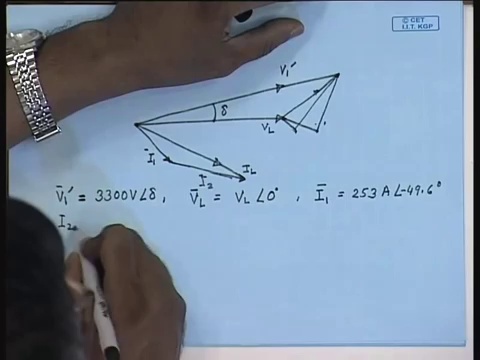 © CET
I.I.T. KGP
V₁′
δ
V_L
I₁
I₂
I_L
V̄₁′ = 3300V∠δ, V̄_L = V_L ∠0°, Ī₁ = 253 A∠-49.6°
I₂